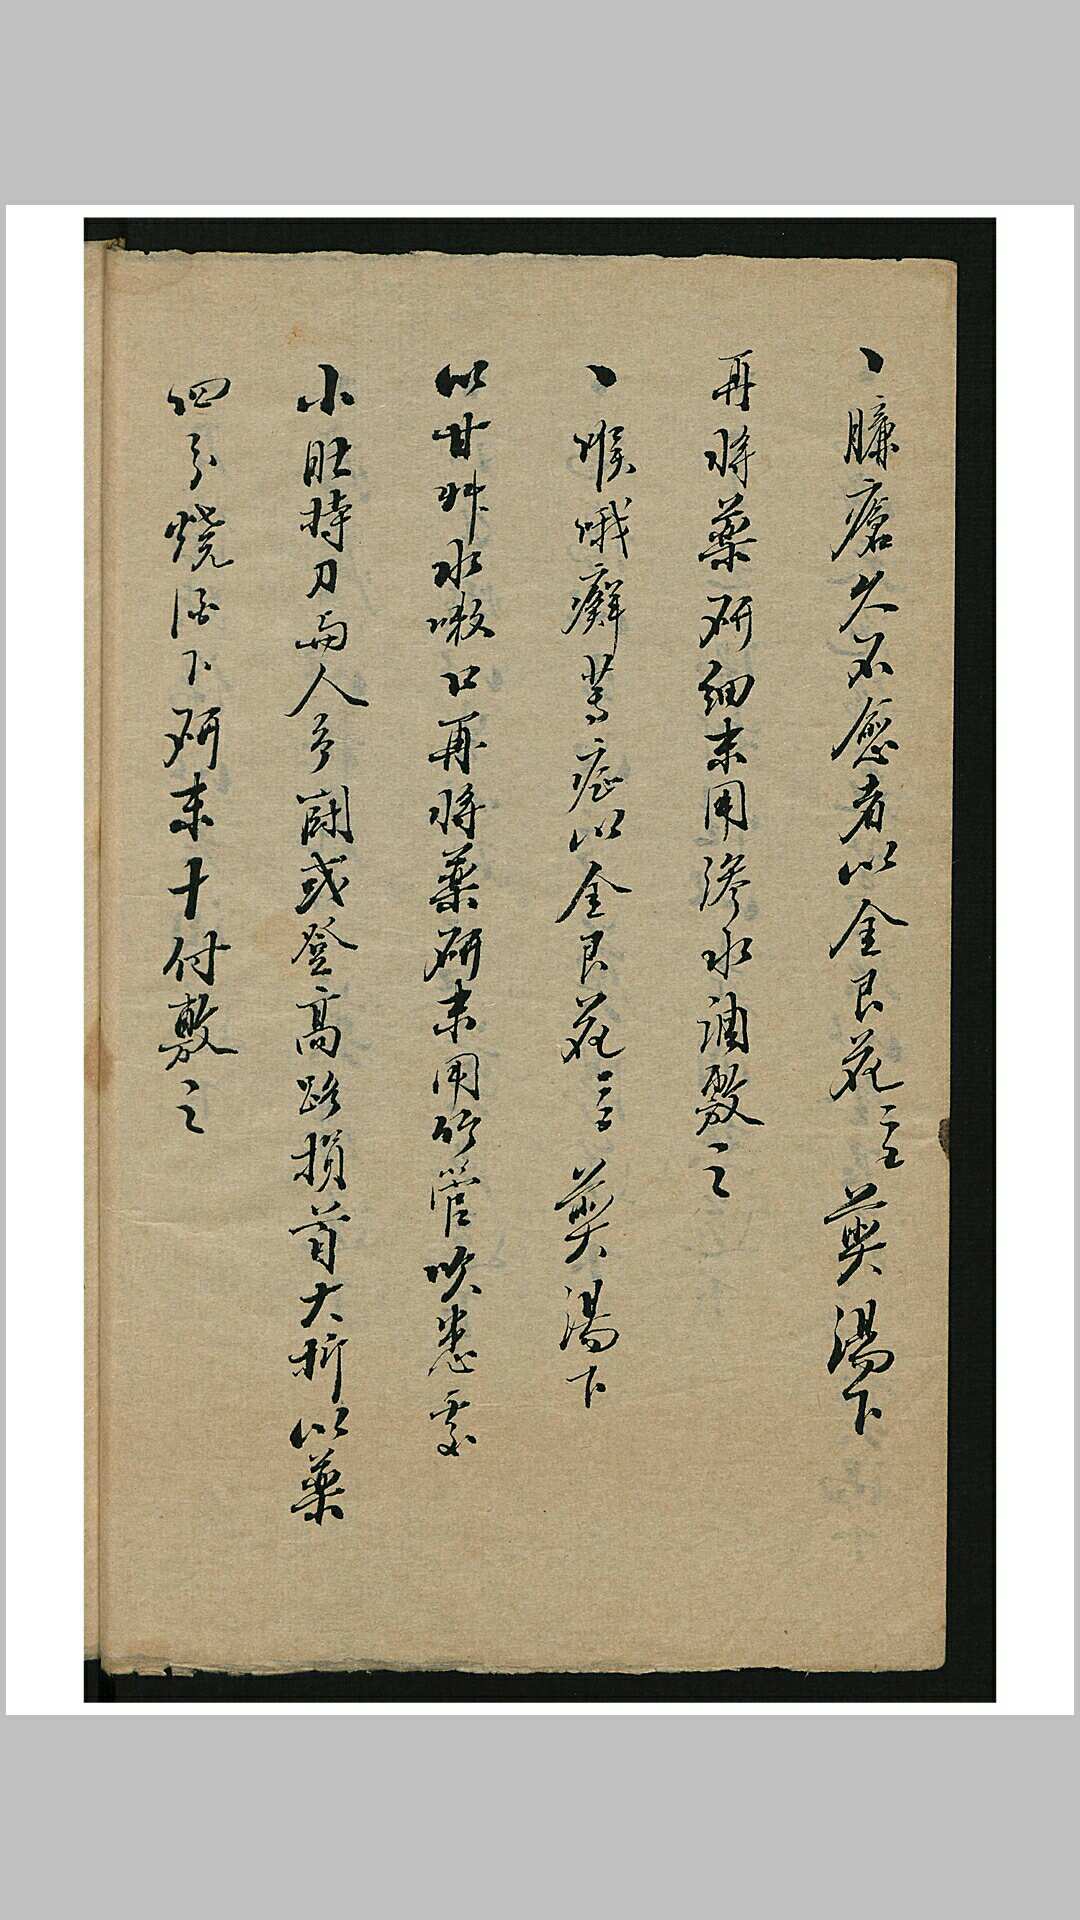 丶臁瘡久不愈者以金艮花三萸湯下
再將薬研細末用滲水調敷之
丶喉哦癬等症以金艮花三萸湯下
以甘艸水嗽口再將薬研末用竹管吹患處
小肚持刀與人争鬪或登高跌損首大折以薬
四分燒酒下研末十付敷之